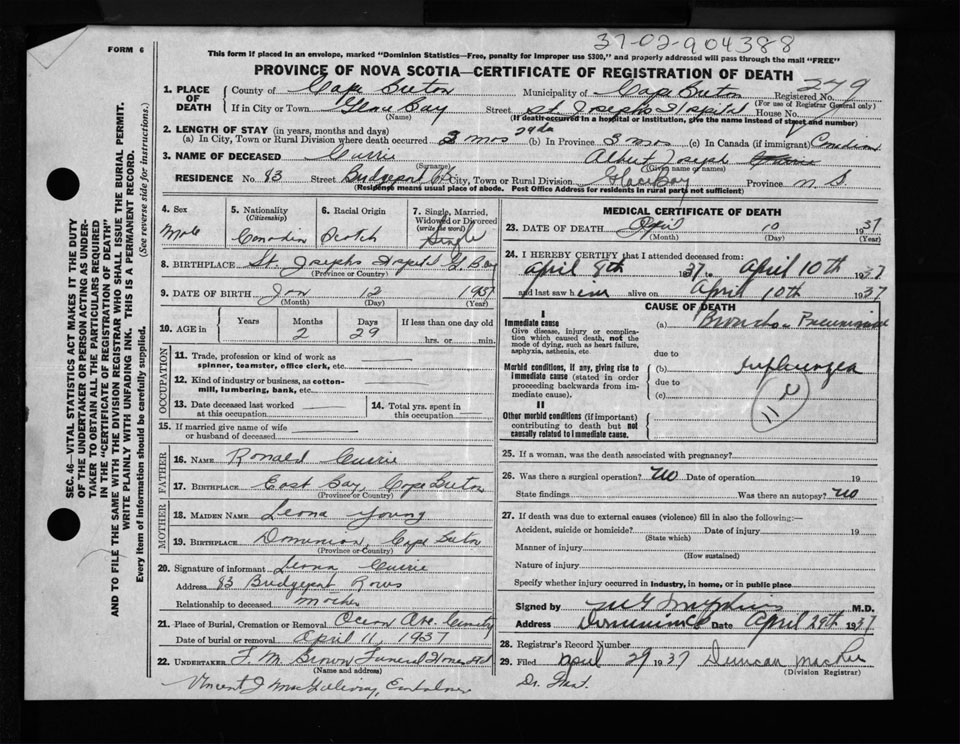 FORM 6
37-02-904388
This form if placed in an envelope, marked "Dominion Statistics—Free, penalty for improper use $300," and properly addressed will pass through the mail "FREE"
PROVINCE OF NOVA SCOTIA—CERTIFICATE OF REGISTRATION OF DEATH
279
1. PLACE OF DEATH County of Cape Breton Municipality of Cape Breton Registered No.
(For use of Registrar General only)
If in City or Town Glace Bay Street St. Josephs Hospital House No.
(Name) (If death occurred in a hospital or institution, give the name instead of street and number)
2. LENGTH OF STAY (in years, months and days)
(a) In City, Town or Rural Division where death occurred 2 mos 29 da (b) In Province 3 mos (c) In Canada (if immigrant) Canadian
3. NAME OF DECEASED Currie Albert Joseph Currie
(Surname) (Given name or names)
RESIDENCE No. 83 Street Bridgeport City, Town or Rural Division Glace Bay Province N S.
(Residence means usual place of abode. Post Office Address for residents in rural parts not sufficient)
4. Sex Male
5. Nationality (Citizenship) Canadian
6. Racial Origin Scotch
7. Single, Married, Widowed or Divorced (write the word) Single
8. BIRTHPLACE St. Josephs Hospital Gl. Bay
(Province or Country)
9. DATE OF BIRTH Jan 12 1937
(Month) (Day) (Year)
10. AGE in Years Months 2 Days 29 If less than one day old hrs. or min.
OCCUPATION
11. Trade, profession or kind of work as spinner, teamster, office clerk, etc.
12. Kind of industry or business, as cotton-mill, lumbering, bank, etc.
13. Date deceased last worked at this occupation
14. Total yrs. spent in this occupation
15. If married give name of wife or husband of deceased
FATHER
16. NAME Ronald Currie
17. BIRTHPLACE East Bay, Cape Breton
(Province or Country)
MOTHER
18. MAIDEN NAME Leona Young
19. BIRTHPLACE Dominion, Cape Breton
(Province or Country)
20. Signature of informant Leona Currie
Address 83 Bridgeport Rows
Relationship to deceased mother
21. Place of Burial, Cremation or Removal Ocean Ave. Cemetery
Date of burial or removal April 11, 1937
22. UNDERTAKER F. M. Brown Funeral Home Ltd
(Name and address)
Vincent J MacGillivray, Embalmer
MEDICAL CERTIFICATE OF DEATH
23. DATE OF DEATH April 10 1937
(Month) (Day) (Year)
24. I HEREBY CERTIFY that I attended deceased from:
April 8th 1937 to April 10th 1937
and last saw him alive on April 10th 1937
CAUSE OF DEATH
I
Immediate cause
Give disease, injury or complication which caused death, not the mode of dying, such as heart failure, asphyxia, asthenia, etc
(a) Broncho Pneumonia
due to
Morbid conditions, if any, giving rise to immediate cause (stated in order proceeding backwards from immediate cause).
(b) Influenza
due to
(c)
11
II
Other morbid conditions (if important) contributing to death but not causally related to immediate cause.
25. If a woman, was the death associated with pregnancy?
26. Was there a surgical operation? No Date of operation 19
State findings Was there an autopsy? No
27. If death was due to external causes (violence) fill in also the following:—
Accident, suicide or homicide? Date of injury 19
(State which)
Manner of injury
(How sustained)
Nature of injury
Specify whether injury occurred in industry, in home, or in public place
Signed by M.D.
Address Dominion C.B. Date April 29th 1937
28. Registrar's Record Number
29. Filed April 29 1937 Duncan
(Division Registrar)
SEC. 46—VITAL STATISTICS ACT MAKES IT THE DUTY
OF THE UNDERTAKER OR PERSON ACTING AS UNDERTAKER TO OBTAIN ALL THE PARTICULARS REQUIRED
IN THE "CERTIFICATE OF REGISTRATION OF DEATH"
AND TO FILE THE SAME WITH THE DIVISION REGISTRAR WHO SHALL ISSUE THE BURIAL PERMIT.
WRITE PLAINLY WITH UNFADING INK. THIS IS A PERMANENT RECORD.
Every item of information should be carefully supplied. (See reverse side for instructions.)